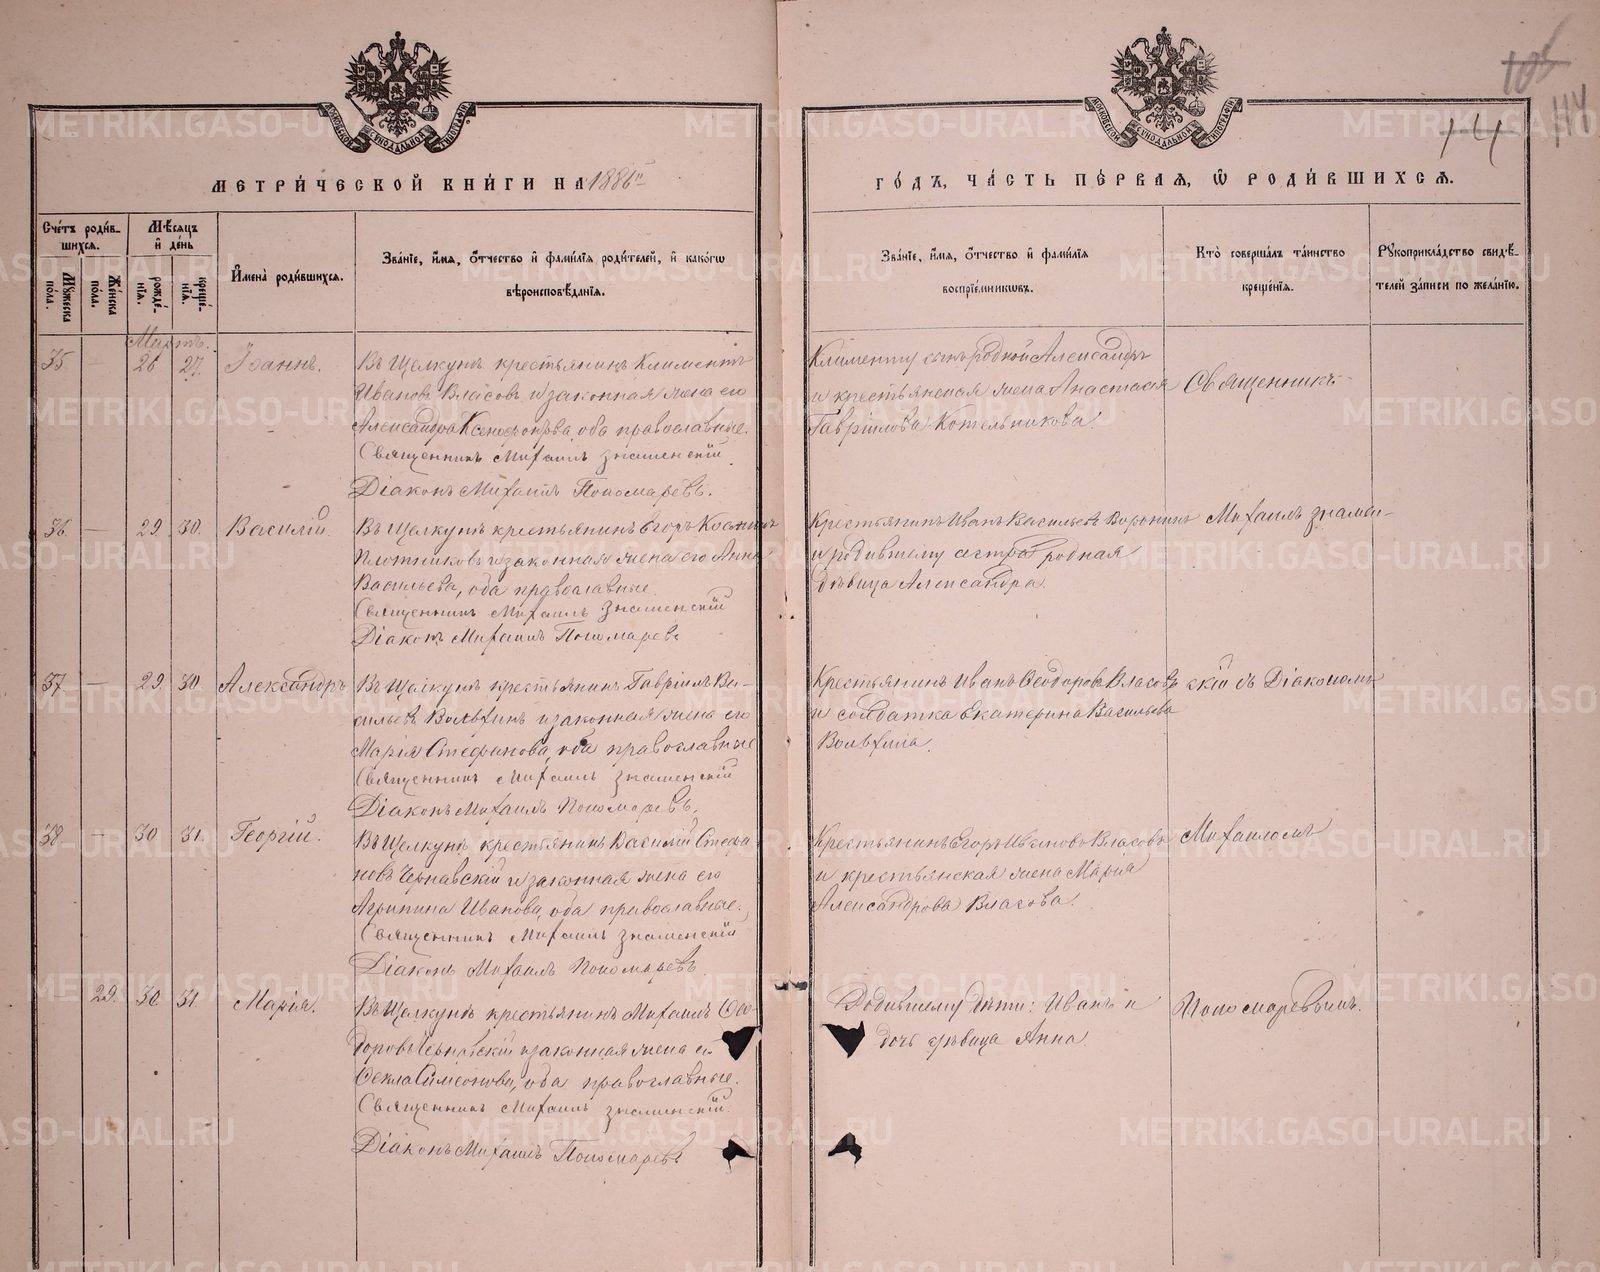 106
114
14
МЕТРИ́ЧЕСКОЙ КНИ́ГИ НА 1886й
ГО́ДЪ, ЧА́СТЬ ПЕ́РВАЯ, Ѡ РОДИ́ВШИХСѦ.
МОСКОВСКОЙ СѴНОДАЛЬНОЙ ТИПОГРАФІИ
МОСКОВСКОЙ СѴНОДАЛЬНОЙ ТИПОГРАФІИ
Сче́тъ роди́в-
шихся.
Му́жеска
по́ла.
Же́нска
по́ла.
Мѣ́сяцъ
и҆ де́нь
рожде́-
нїѧ.
креще́-
нїѧ.
И҆мена̀ роди́вшихся.
Зва́нїе, и҆́мѧ, ѻ҆́тчество и҆ фамі́лїѧ роди́телей, и҆ како́гѡ
вѣроисповѣ́данїѧ.
Зва́нїе, и҆́мѧ, ѻ҆́тчество и҆ фамі́лїѧ
воспрїе́мникѡвъ.
Кто̀ соверша́лъ та́инство
креще́нїѧ.
Рꙋкоприкла́дство свидѣ́-
телей за́писи по жела́нїю.
Мартъ.
35 — 26 27. Іоаннъ.
Въ Щелкунѣ крестьянинъ Климентъ
Ивановъ Власовъ и законная жена его
Александра Ксенофонтова, оба православные.
Священникъ Михаилъ Знаменскій
Діаконъ Михаилъ Пономаревъ.
Климента сынъ родной Александръ
и крестьянская жена Анастасія
Гавріилова Котельникова.
Священникъ
36. — 29 30. Василій
Въ Щелкунѣ крестьянинъ Егоръ Косминъ
Плотниковъ и законная жена его Анна
Васильева, оба православные.
Священникъ Михаилъ Знаменскій
Діаконъ Михаилъ Пономаревъ
Крестьянинъ Иванъ Васильевъ Воронинъ
и родившему сестра родная
дѣвица Александра.
Михаилъ Знамен-
37 — 29. 30. Александръ
Въ Щелкунѣ крестьянинъ Гавріилъ Ва-
сильевъ Вольхинъ и законная жена его
Марія Стефанова, оба православные
Священникъ Михаилъ Знаменскій
Діаконъ Михаилъ Пономаревъ.
Крестьянинъ Иванъ Ѳеодоровъ Власовъ
и солдатка Екатерина Васильева
Вольхина.
скій съ Діакономъ
38 — 30 31. Георгій.
Въ Щелкунѣ крестьянинъ Василій Стефа
новъ Чернавскій и законная жена его
Агрипина Иванова, оба православные.
Священникъ Михаилъ Знаменскій
Діаконъ Михаилъ Пономаревъ
Крестьянинъ Егоръ Ивановъ Власовъ
и крестьянская жена Марія
Александрова Власова.
Михаиломъ
29. 30. 31 Марія.
Въ Щелкунѣ крестьянинъ Михаилъ Ѳео-
доровъ Чернавскій и законная жена его
Ѳекла Симеонова, оба православные.
Священникъ Михаилъ Знаменскій
Діаконъ Михаилъ Пономаревъ
Родившему дѣти: Иванъ и
дочь дѣвица Анна.
Пономаревымъ.
METRIKI.GASO-URAL.RU